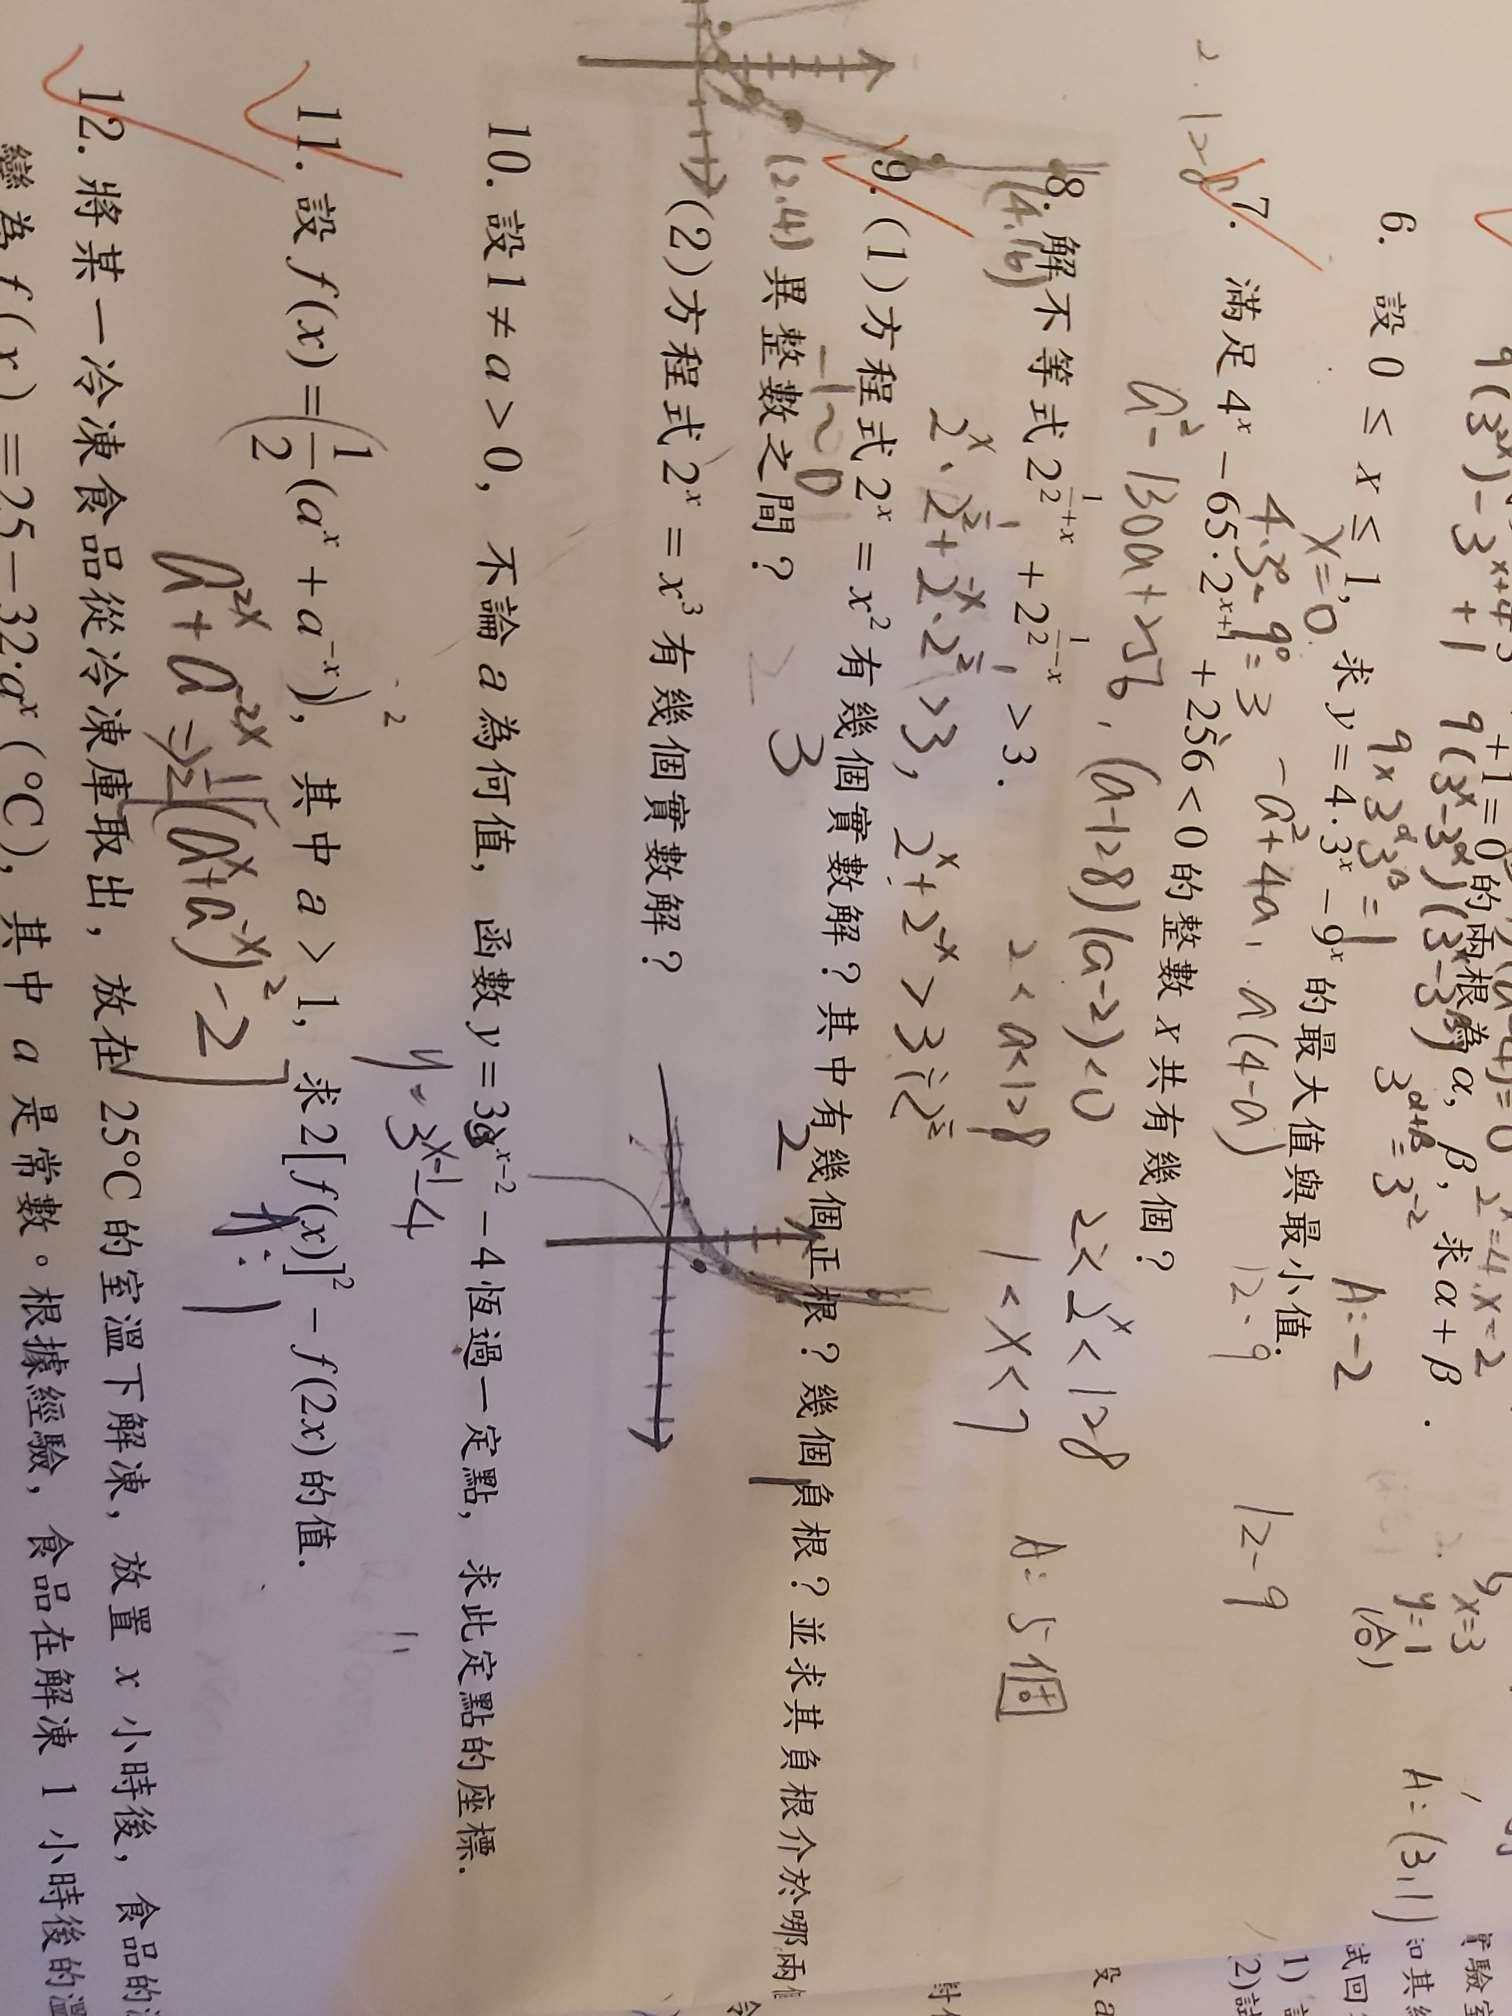 9(3^x)² - 3^{x+4} + 1
+1=0的兩根為α, β, 求α+β.
9(3^x-3^α)(3^x-3^β)
9×3^α 3^β = 1
3^{α+β} = 3^{-2}
A: -2
2^x=4. x=2
x=3
y=1
(合)
A: (3,1)
6. 設 0 ≤ x ≤ 1, 求 y = 4·3^x − 9^x 的最大值與最小值.
x=0
4·3⁰ - 9⁰ = 3
-a²+4a, a(4-a)
12-9
12-9
7. 滿足 4^x − 65·2^{x+1} + 256 < 0 的整數 x 共有幾個?
a² - 130a + 256, (a-128)(a-2)<0
2 < 2^x < 128
2 < a < 128
1 < x < 7
A: 5個
8. 解不等式 2^{1/2+x} + 2^{1/2−x} > 3.
2^x·2^{1/2} + 2^{-x}·2^{1/2} > 3, 2^x + 2^{-x} > 3÷2^{1/2}
(4,16)
9. (1)方程式 2^x = x² 有幾個實數解? 其中有幾個正根? 幾個負根? 並求其負根介於哪兩個
異整數之間?
(2,4)
-1~0
3
2
1
(2)方程式 2^x = x³ 有幾個實數解?
10. 設 1 ≠ a > 0, 不論 a 為何值, 函數 y = 3a^{x−2} − 4 恆過一定點, 求此定點的座標.
y = 3^{x-1} - 4
11. 設 f(x) = 1/2 (a^x + a^{−x}), 其中 a > 1, 求 2[f(x)]² − f(2x) 的值.
2
a^{2x} + a^{-2x} ⇒ 1/2[(a^x + a^{-x})² - 2]
A: 1
12. 將某一冷凍食品從冷凍庫取出, 放在 25°C 的室溫下解凍, 放置 x 小時後, 食品的
變為 f(x) = 25 − 32·a^x (°C), 其中 a 是常數。根據經驗, 食品在解凍 1 小時後的溫